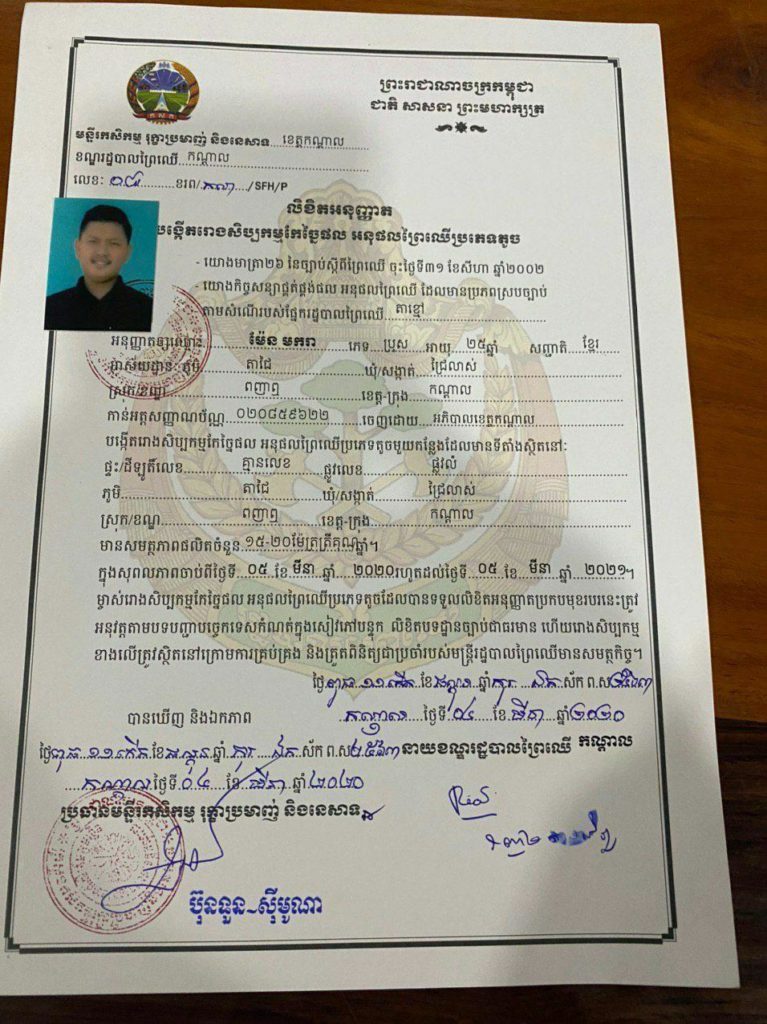 ព្រះរាជាណាចក្រកម្ពុជា
ជាតិ សាសនា ព្រះមហាក្សត្រ
មន្ទីរកសិកម្ម រុក្ខាប្រមាញ់ និងនេសាទ ខេត្តកណ្តាល
ខណ្ឌរដ្ឋបាលព្រៃឈើ កណ្តាល
លេខៈ ........ ខរព/ ...... /SFH/P
លិខិតអនុញ្ញាត
បង្កើតរោងសិប្បកម្មកែច្នៃផល អនុផលព្រៃឈើប្រភេទតូច
- យោងមាត្រា២៦ នៃច្បាប់ស្តីពីព្រៃឈើ ចុះថ្ងៃទី៣១ ខែសីហា ឆ្នាំ២០០២
- យោងកិច្ចសន្យាផ្គត់ផ្គង់ផល អនុផលព្រៃឈើ ដែលមានប្រភពស្របច្បាប់
តាមសំណើរបស់ផ្នែករដ្ឋបាលព្រៃឈើ តាខ្មៅ
អនុញ្ញាតឲ្យឈ្មោះ ម៉ែន មករា ភេទ ប្រុស អាយុ ២៥ឆ្នាំ សញ្ជាតិ ខ្មែរ
អាស្រ័យដ្ឋានៈ ភូមិ តាដៃ ឃុំ/សង្កាត់ ជ្រៃលាស់
ស្រុក/ខណ្ឌ ពញាឮ ខេត្ត-ក្រុង កណ្តាល
កាន់អត្តសញ្ញាណប័ណ្ណ ០២០៨៥៩៦២២ ចេញដោយ អភិបាលខេត្តកណ្តាល
បង្កើតរោងសិប្បកម្មកែច្នៃផល អនុផលព្រៃឈើប្រភេទតូចមួយកន្លែងដែលមានទីតាំងស្ថិតនៅៈ
ផ្ទះ/ដីឡូតិ៍លេខ គ្មានលេខ ផ្លូវលេខ ផ្លូវលំ
ភូមិ តាដៃ ឃុំ/សង្កាត់ ជ្រៃលាស់
ស្រុក/ខណ្ឌ ពញាឮ ខេត្ត-ក្រុង កណ្តាល
មានសមត្ថភាពផលិតចំនួន ១៥-២០ម៉ែត្រត្រីគុណ/ឆ្នាំ។
ក្នុងសុពលភាពចាប់ពីថ្ងៃទី ០៥ ខែ មីនា ឆ្នាំ 2020រហូតដល់ថ្ងៃទី ០៥ ខែ មីនា ឆ្នាំ 2021។
ម្ចាស់រោងសិប្បកម្មកែច្នៃផល អនុផលព្រៃឈើប្រភេទតូចដែលបានទទួលលិខិតអនុញ្ញាតប្រកបមុខរបរនេះត្រូវ
អនុវត្តតាមបទបញ្ជាបច្ចេកទេសកំណត់ក្នុងសៀវភៅបន្ទុក លិខិតបទដ្ឋានច្បាប់ជាធរមាន ហើយរោងសិប្បកម្ម
ខាងលើត្រូវស្ថិតនៅក្រោមការគ្រប់គ្រង និងត្រួតពិនិត្យជាប្រចាំរបស់មន្ត្រីរដ្ឋបាលព្រៃឈើមានសមត្ថកិច្ច។
ថ្ងៃ ពុធ ១១កើត ខែ ផល្គុន ឆ្នាំ កុរ ឯក ស័ក ព.ស ២៥៦៣
កណ្តាល ថ្ងៃទី ០៤ ខែ មីនា ឆ្នាំ ២០២០
បានឃើញ និងឯកភាព
ថ្ងៃ ពុធ ១១កើត ខែ ផល្គុន ឆ្នាំ កុរ ឯក ស័ក ព.ស ២៥៦៣ នាយខណ្ឌរដ្ឋបាលព្រៃឈើ កណ្តាល
កណ្តាល ថ្ងៃទី ០៤ ខែ មីនា ឆ្នាំ ២០២០
ប្រធានមន្ទីរកសិកម្ម រុក្ខាប្រមាញ់ និងនេសាទ
ប៊ុនទួន~ស៊ីមូណា